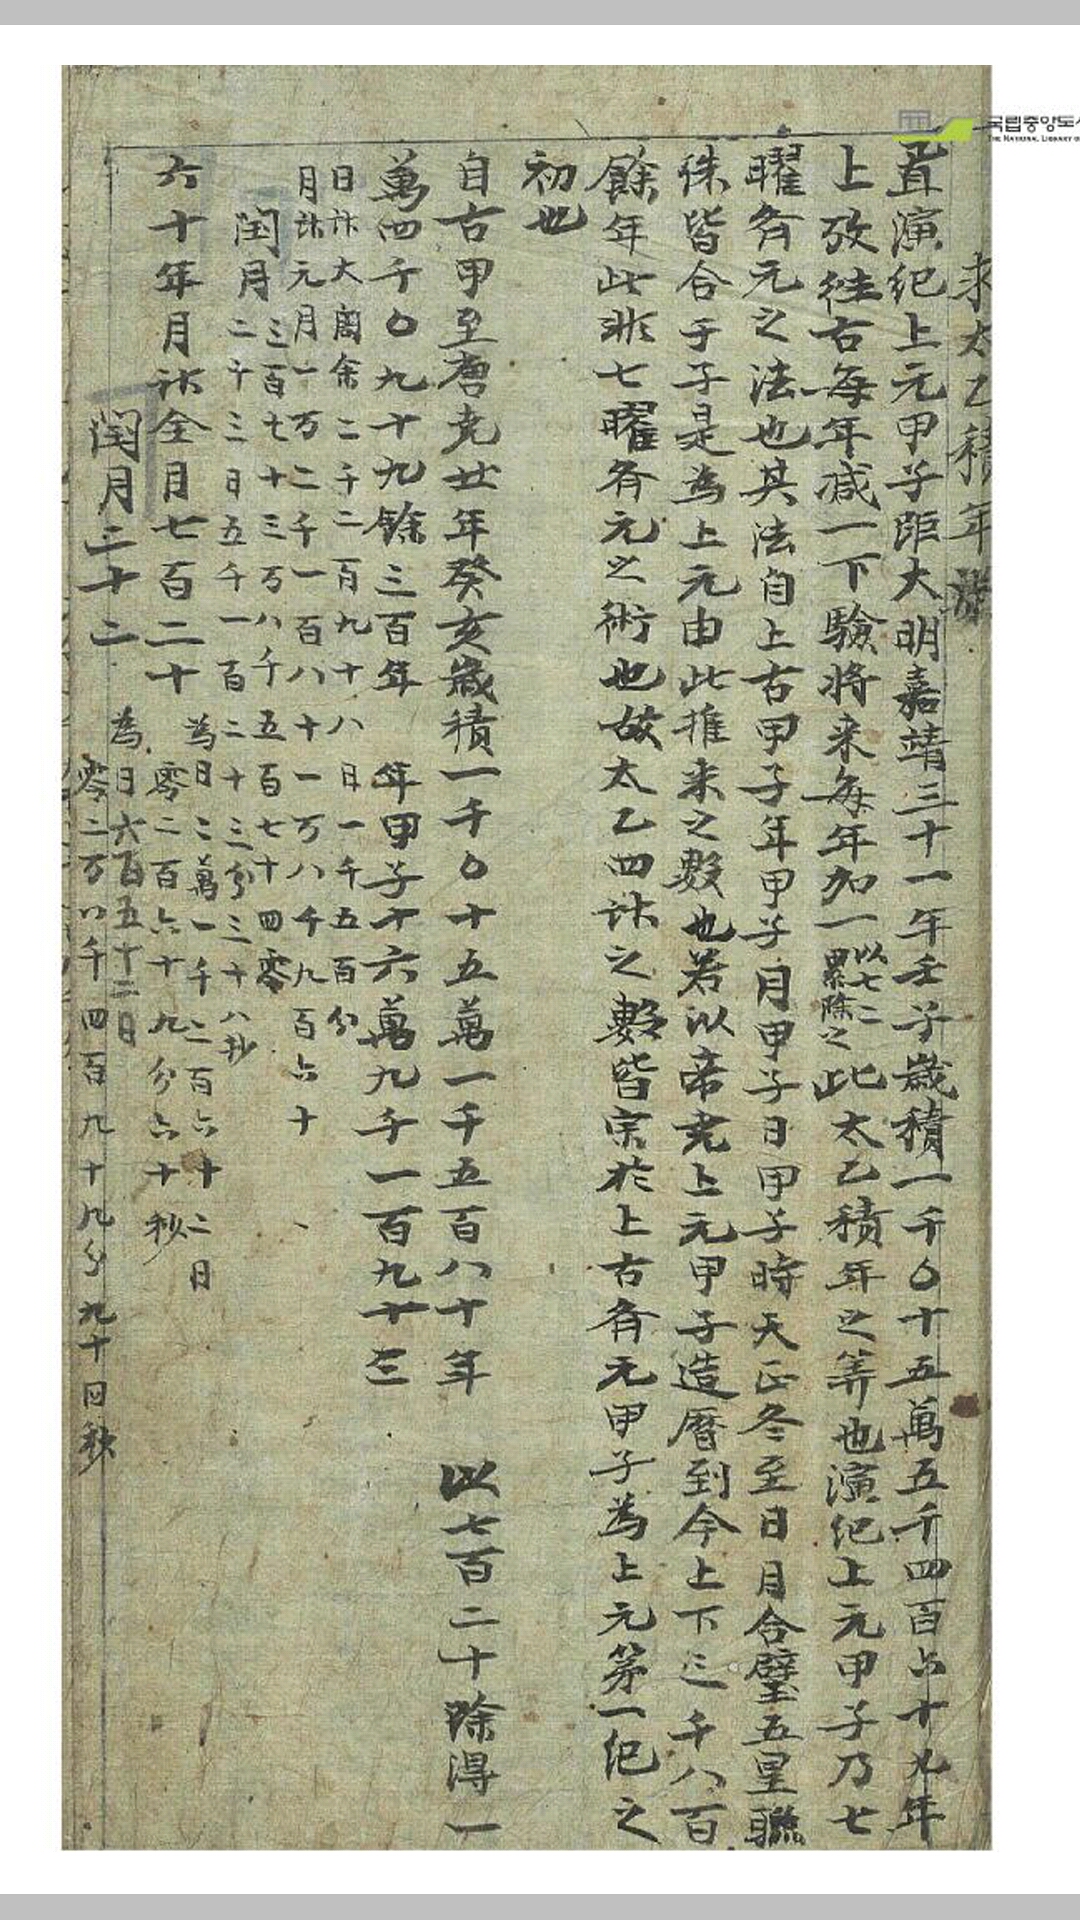 求太乙積年
置演紀上元甲子距大明嘉靖三十一年壬子歲積一千〇十五萬五千四百六十九年
上攷徃古每年减一下驗将来每年加一以七二累除之此太乙積年之筭也演紀上元甲子乃七
曜斉元之法也其法自上古甲子年甲子月甲子日甲子時天正冬至日月合璧五星聯
珠皆合于子是為上元由此推来之數也若以帝尭上元甲子造曆到今上下三千八百
餘年此非七曜斉元之術也故太乙四计之數皆宗於上古斉元甲子為上元苐一纪之
初也
自古甲至唐尭廿年癸亥歲積一千〇十五萬一千五百八十年 以七百二十除得一
萬四千〇九十九餘三百年 年甲子十六萬九千一百九十三
日计大閏余二千二百九十八日一千五百分
月计元月一万二千一百八十一万八千九百六十
閏月三百七十三万八千五百七十四零
二千三日五千一百二十三分三十八抄
六十年月计全月七百二十
為日二萬一千二百六十二日
零二百六十九分六十秒
閏月二十二
為日六百五十二日
零二万八千四百九十九分九十四秒
국립중앙도서
THE NATIONAL LIBRARY O